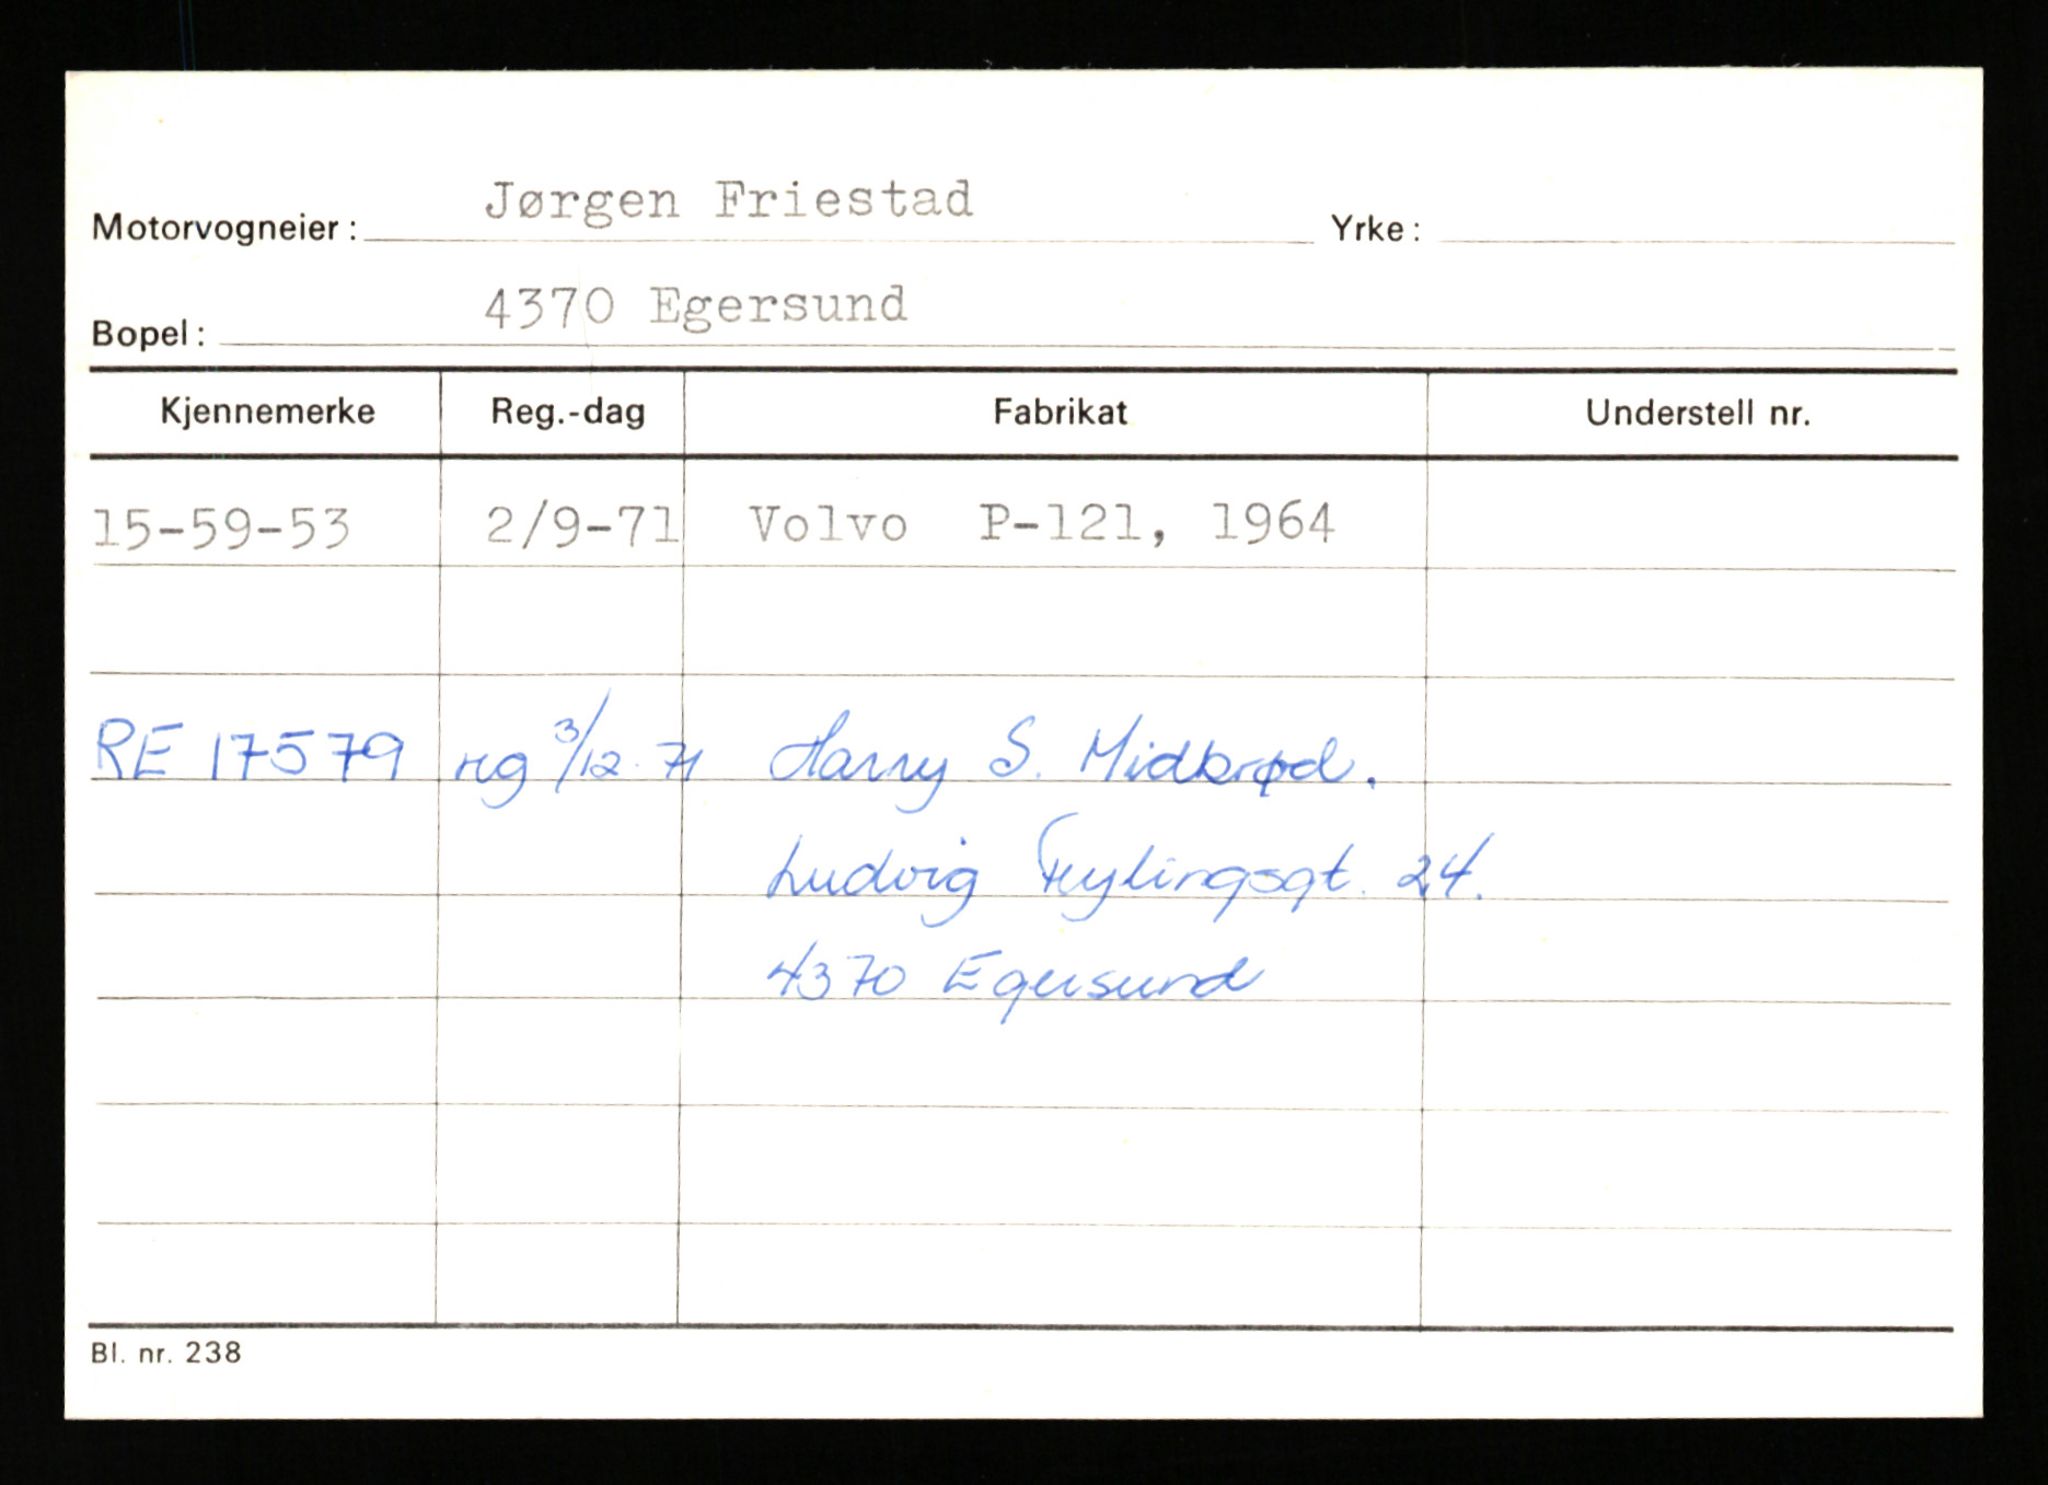 Motorvogneier: Jørgen Friestad Yrke:
Bopel: 4370 Egersund
Kjennemerke Reg.-dag Fabrikat Understell nr.
15-59-53 2/9-71 Volvo P-121, 1964
RE 17579 reg 3/12-71 Harry S. Midbrød.
Ludvig Feylingsgt. 24.
4370 Egersund
Bl. nr. 238